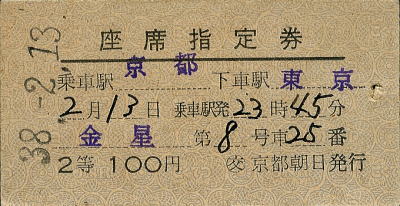 38.-2.13
座席指定券
乗車駅 京都 下車駅 東京
2月13日 乗車駅発 23時45分
金星 第8号車25番
2等 100円 交 京都朝日発行